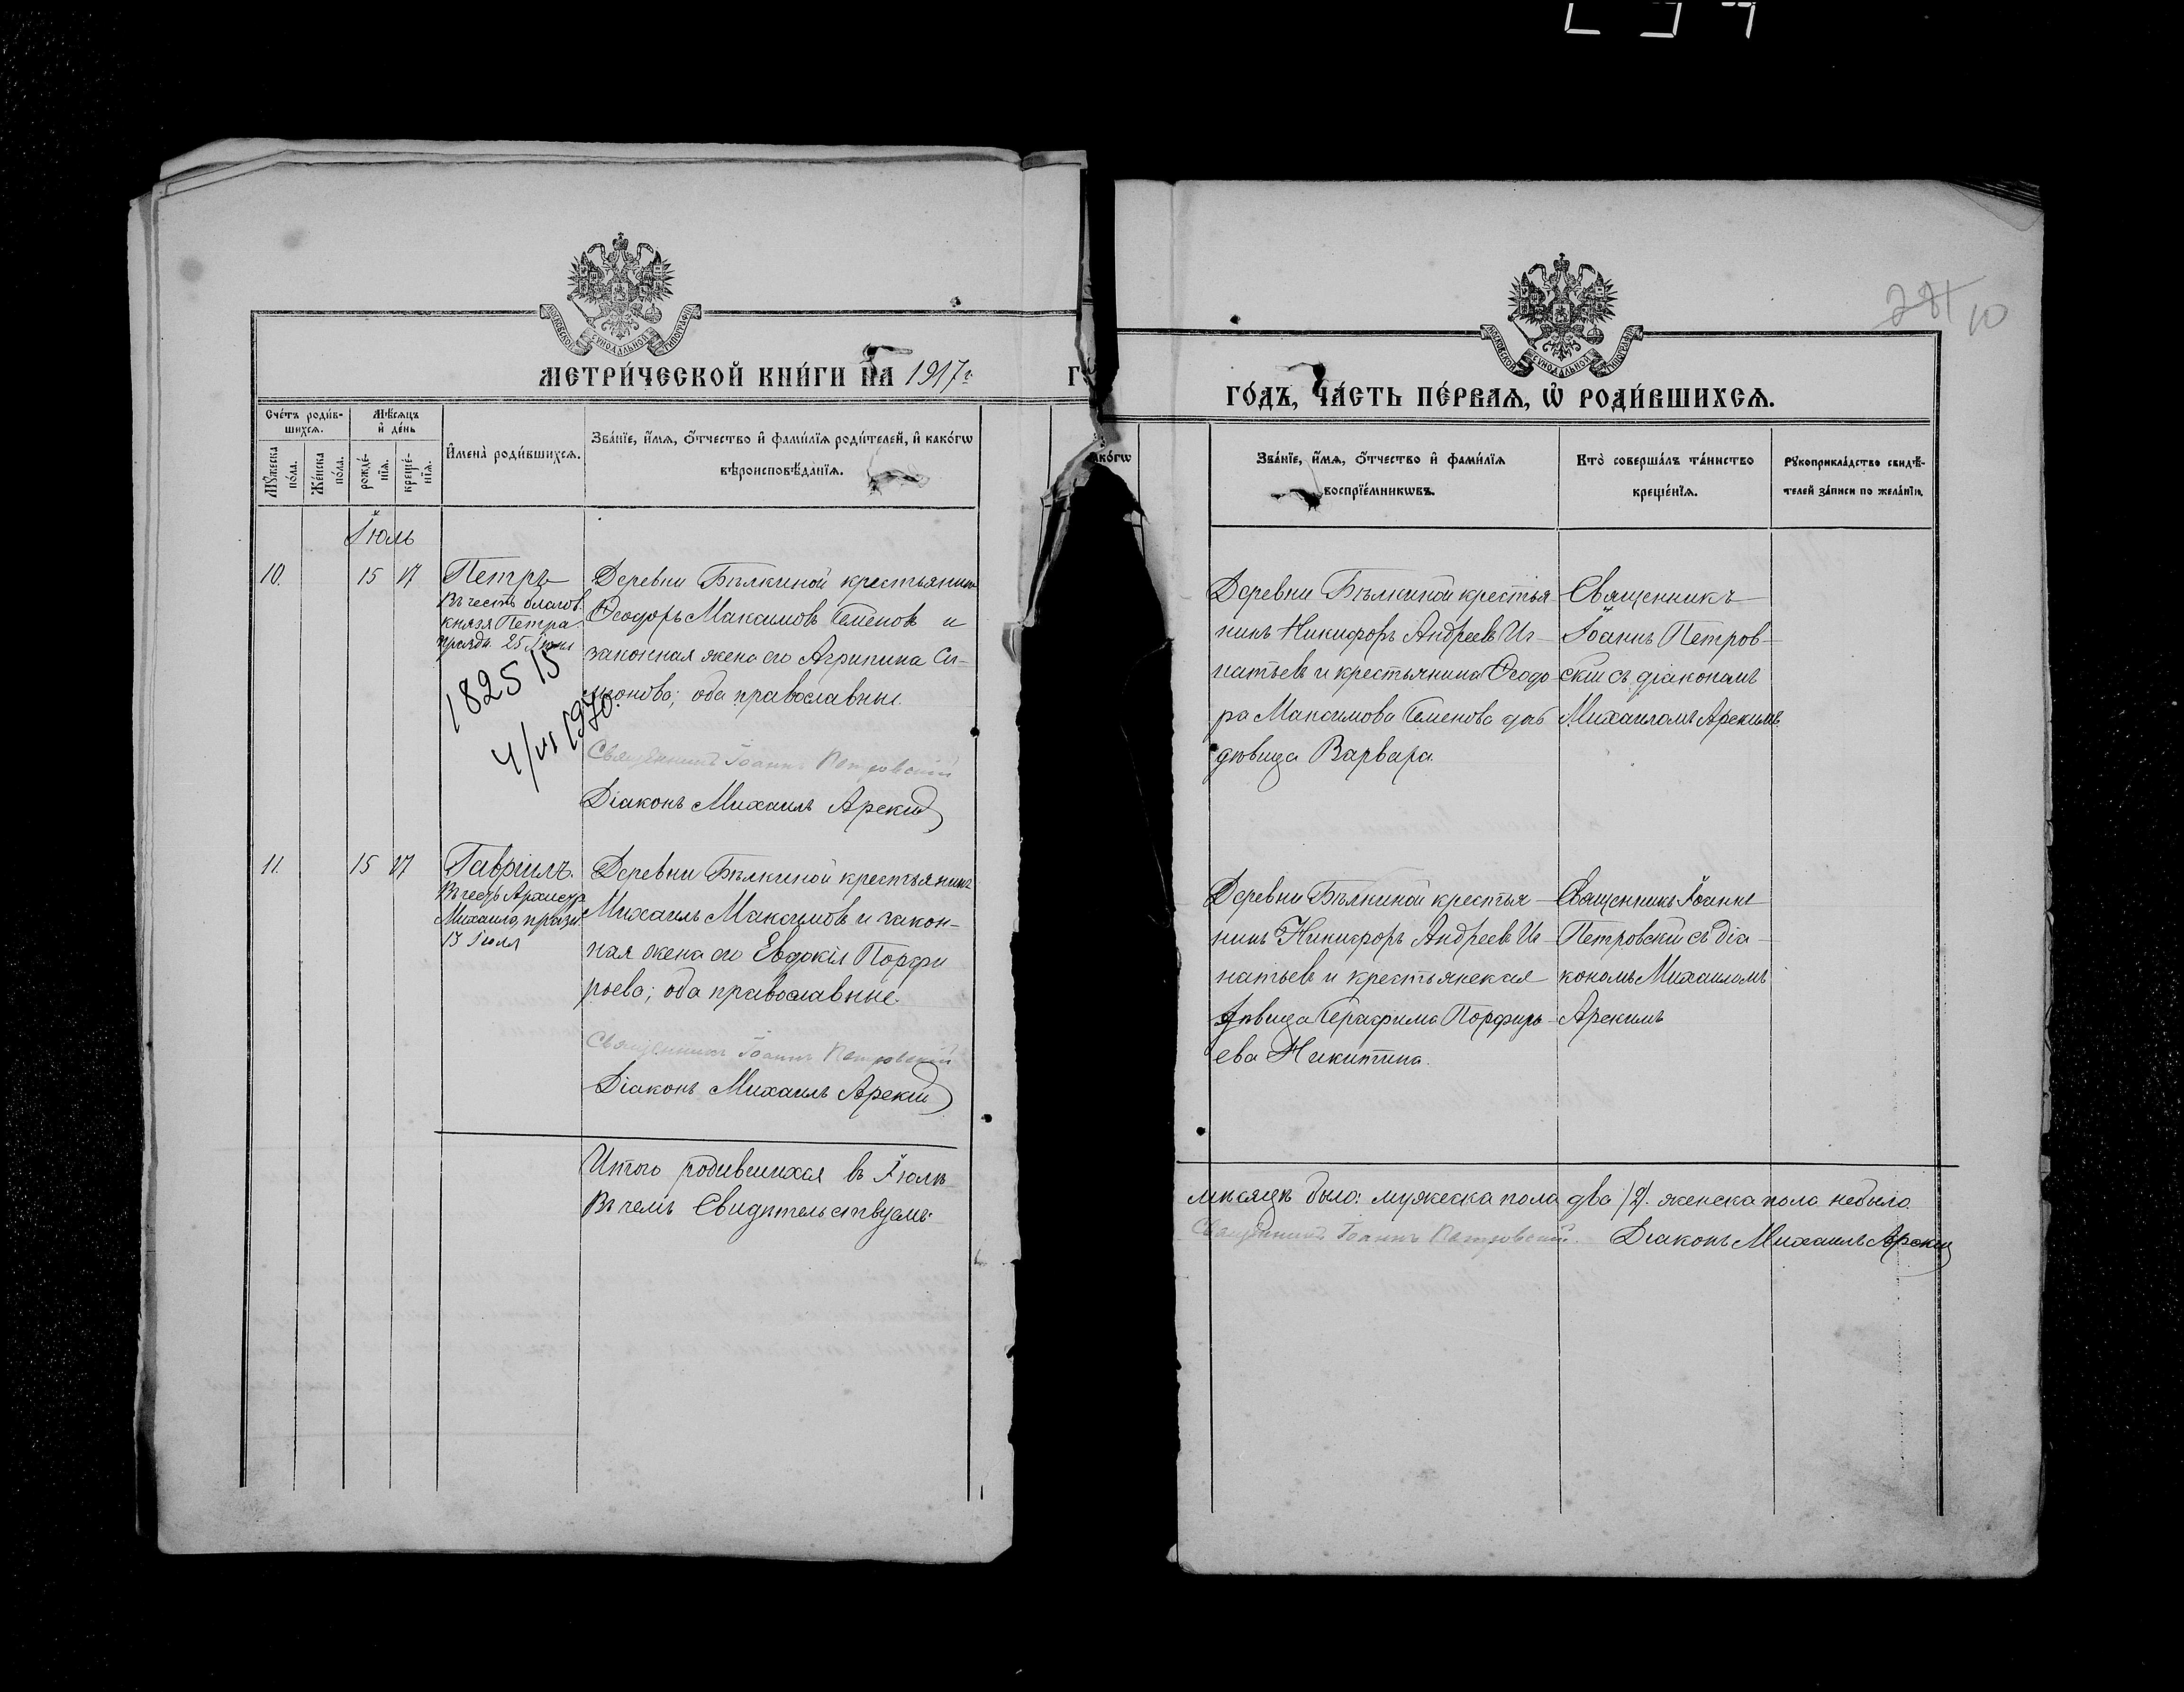 МОСКОВСКОЙ СѴНОДАЛЬНОЙ ТИПОГРАФІИ
МЕТРИ́ЧЕСКОЙ КНИ́ГИ НА 1917 г.
Сче́тъ роди́в-
шихсѧ.
Мѣ́сѧцъ
и҆ де́нь
Мꙋ́жеска
по́ла.
Же́нска
по́ла.
рожде́-
нїѧ.
креще́-
нїѧ.
И҆мена̀ роди́вшихсѧ.
Зва́нїе, и҆́мѧ, ѻ҆́тчество и҆ фами́лїѧ роди́телей, и҆ како́гѡ
вѣроисповѣ́данїѧ.
Іюль
10. 15 17
Петръ
Въ честь благов.
князя Петра
праздн. 25 Іюня
1825 15
4/VI 1970.
Деревни Бѣлкиной крестьянинъ
Ѳеодоръ Максимовъ Семеновъ и
законная жена его Агрипина Си-
меонова; оба православные.
Священникъ Іоаннъ Петровскій
Діаконъ Михаилъ Арскій
11. 15 17
Гавріилъ.
Въ честь Архистр.
Михаила, празд.
13 Іюля
Деревни Бѣлкиной крестьянинъ
Михаилъ Максимовъ и закон-
ная жена его Евдокія Порфи
рьева; оба православные.
Священникъ Іоаннъ Петровскій
Діаконъ Михаилъ Арскій
Итого родившихся въ Іюлѣ
Въ чемъ Свидѣтельствуемъ:
281 10
МОСКОВСКОЙ СѴНОДАЛЬНОЙ ТИПОГРАФІИ
ГО́ДЪ, ЧА́СТЬ ПЕ́РВАѦ, Ѡ҆ РОДИ́ВШИХСѦ.
Зва́нїе, и҆́мѧ, ѻ҆́тчество и҆ фами́лїѧ
воспрїе́мникѡвъ.
Кто̀ соверша́лъ та́инство
креще́нїѧ.
Рꙋкоприкла́дство свидѣ́-
телей за́писи по жела́нїю.
Деревни Бѣлкиной крестья
нинъ Никифоръ Андреевъ Иг-
натьевъ и крестьянина Ѳеодо
ра Максимова Семенова дочь
дѣвица Варвара.
Священникъ
Іоаннъ Петров-
скій съ діакономъ
Михаиломъ Арскимъ
Деревни Бѣлкиной крестья-
нинъ Никифоръ Андреевъ Иг-
натьевъ и крестьянская
дѣвица Серафима Порфирь-
ева Никитина.
Священникъ Іоаннъ
Петровскій съ діа-
кономъ Михаиломъ
Арскимъ
мѣсяцѣ было: мужеска пола два (2). женска пола небыло.
Священникъ Іоаннъ Петровскій. Діаконъ Михаилъ Арскій